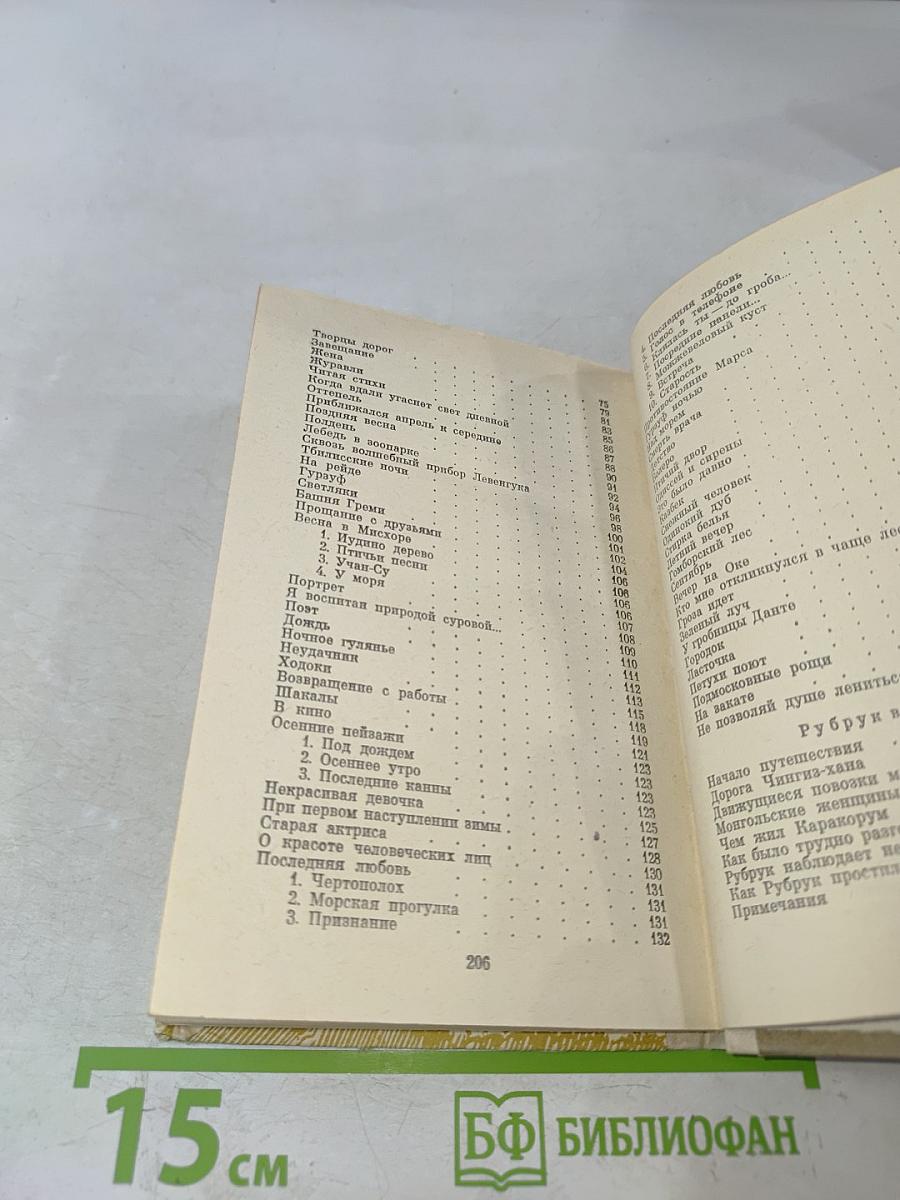 Творцы дорог 75
Завещание 79
Жена 81
Журавли 83
Читая стихи 85
Когда вдали угаснет свет дневной 86
Оттепель 87
Приближался апрель к середине 88
Поздняя весна 90
Полдень 91
Лебедь в зоопарке 92
Сквозь волшебный прибор Левенгука 94
Тбилисские ночи 96
На рейде 98
Гурзуф 100
Светляки 101
Башня Греми 102
Прощание с друзьями 104
Весна в Мисхоре 106
1. Иудино дерево 106
2. Птичьи песни 106
3. Учан-Су 106
4. У моря 107
Портрет 108
Я воспитан природой суровой... 109
Поэт 110
Дождь 111
Ночное гулянье 112
Неудачник 113
Ходоки 115
Возвращение с работы 118
Шакалы 119
В кино 121
Осенние пейзажи 123
1. Под дождем 123
2. Осеннее утро 123
3. Последние канны 123
Некрасивая девочка 125
При первом наступлении зимы 127
Старая актриса 128
О красоте человеческих лиц 130
Последняя любовь 131
1. Чертополох 131
2. Морская прогулка 131
3. Признание 132
206
4. Последняя любовь
5. Голос в телефоне
6. Клялась ты — до гроба...
7. Посредине панели...
8. Можжевеловый куст
9. Встреча
10. Старость
Противостояние Марса
Гурзуф ночью
Над морем
Смерть врача
Детство
Болеро
Птичий двор
Одиссей и сирены
Это было давно
Казбек
Снежный человек
Одинокий дуб
Стирка белья
Летний вечер
Гомборский лес
Сентябрь
Вечер на Оке
Кто мне откликнулся в чаще лес
Гроза идет
Зеленый луч
У гробницы Данте
Городок
Ласточка
Петухи поют
Подмосковные рощи
На закате
Не позволяй душе лениться
Рубрук в
Начало путешествия
Дорога Чингиз-хана
Движущиеся повозки м
Монгольские женщины
Чем жил Каракорум
Как было трудно разго
Рубрук наблюдает не
Как Рубрук простил
Примечания
15 см
БФ БИБЛИОФАН